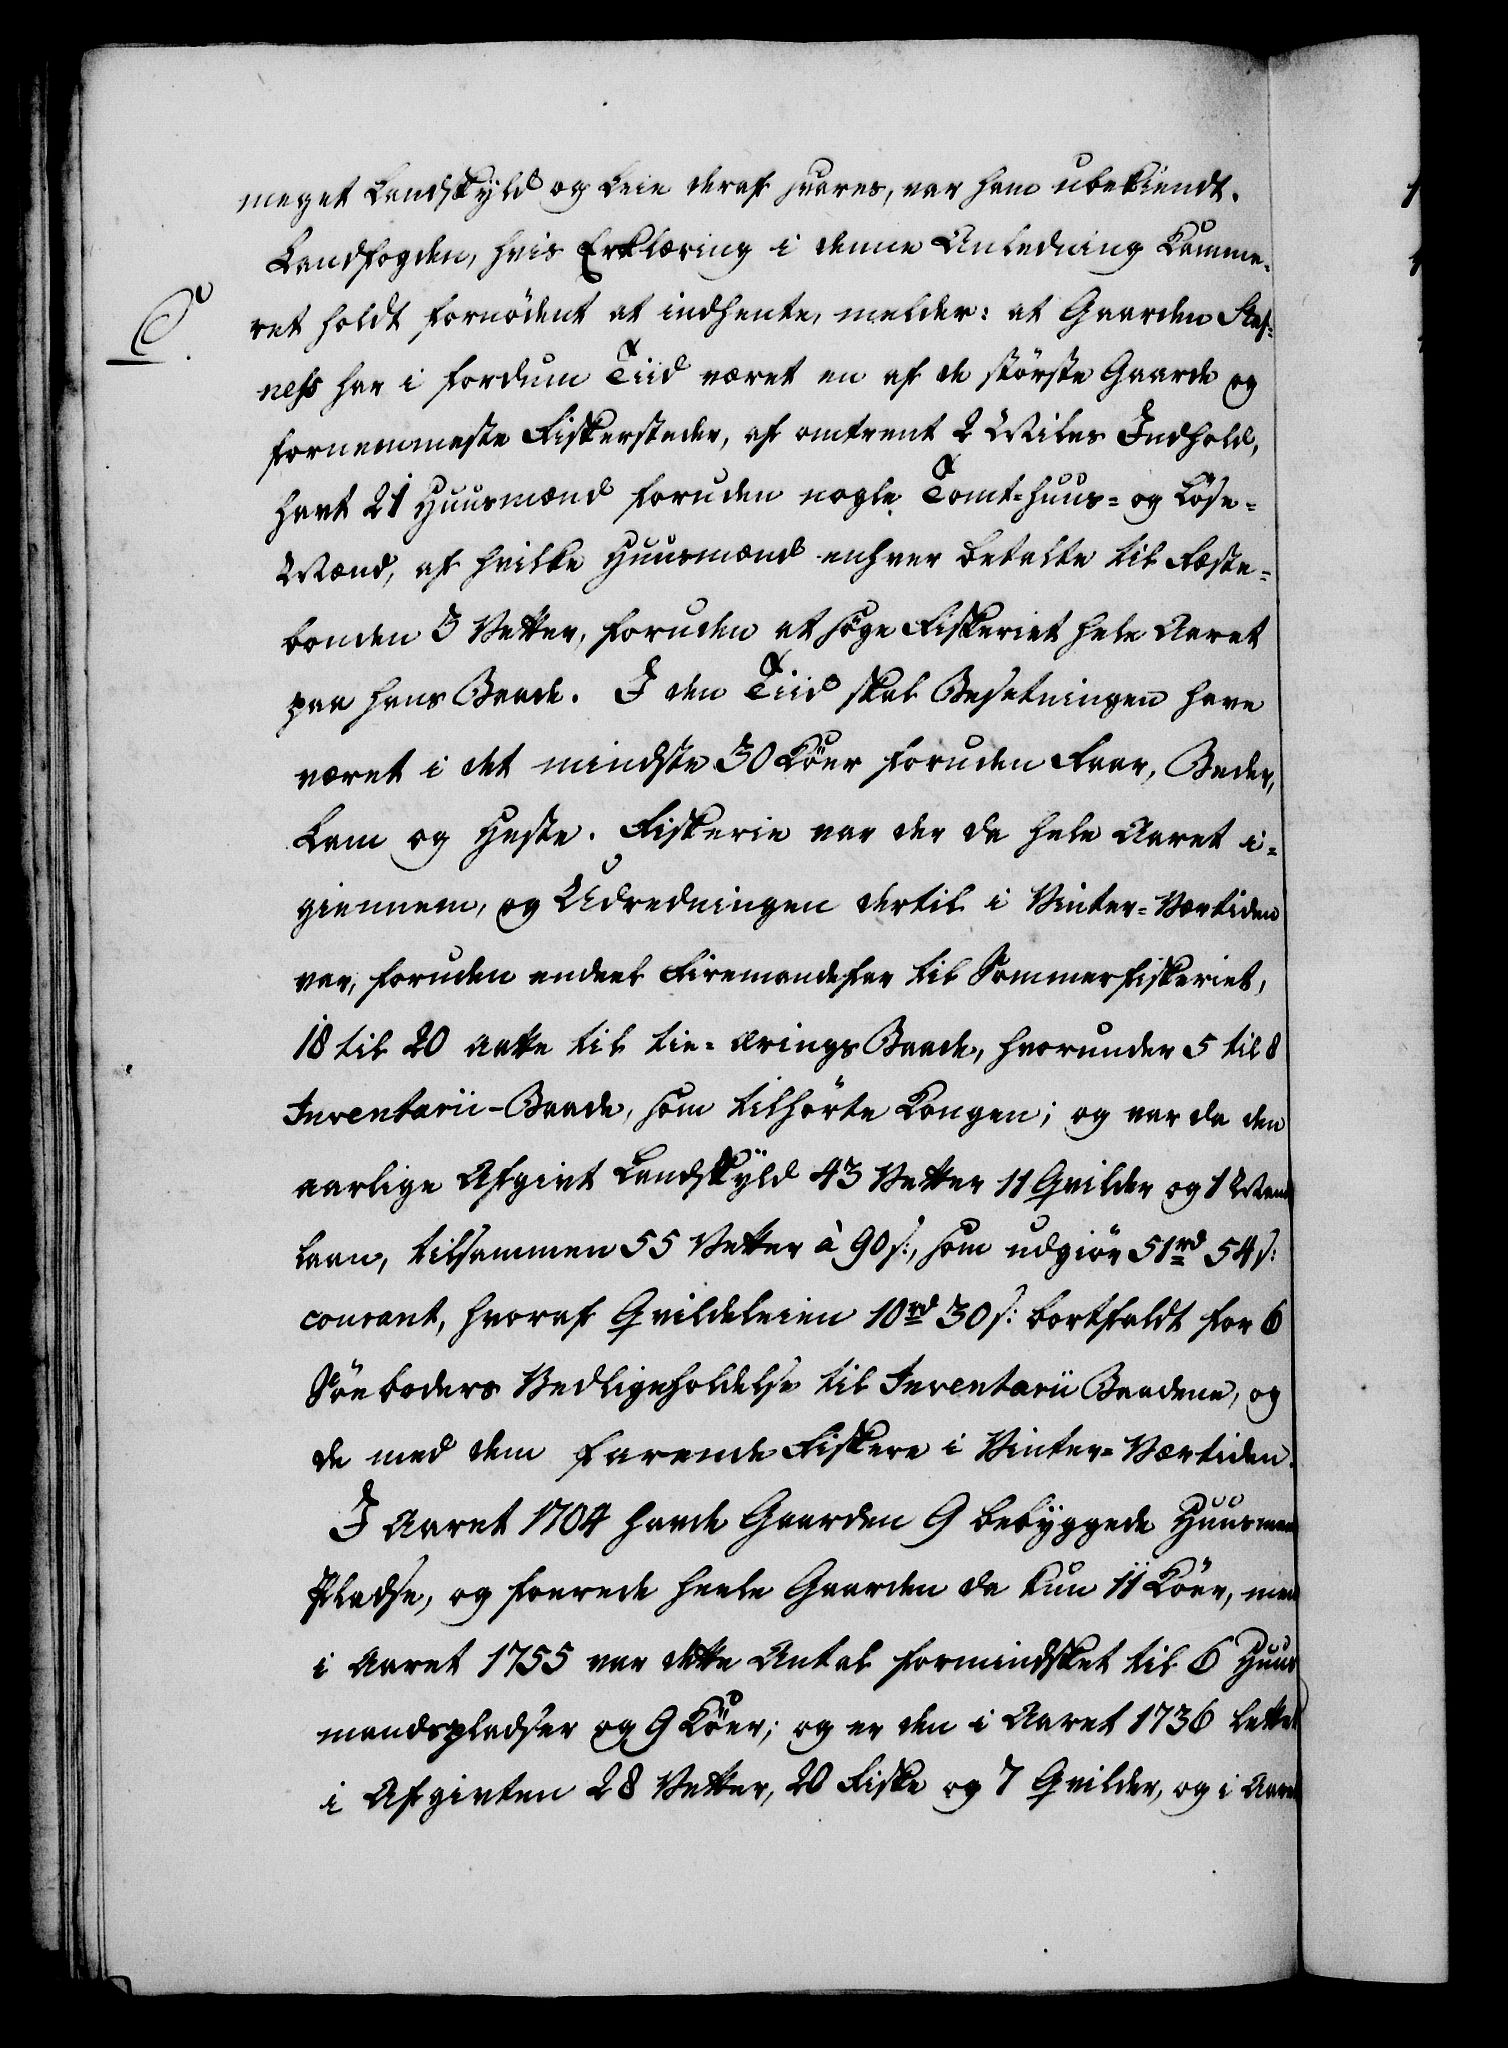 meget Landskÿld og Leie deraf svares, var ham ubekiendt.
Landfogden, hvis Erklæring i denne Anledning Kamme-
ret holdt fornødent at indhente, melder: at Gaarden Stafs-
ness har i fordum Tiid været en af de største Gaarde og
fornemmeste Fiskersteder, af omtrent 2 Miles Indhold,
havt 21 Huusmænd foruden nogle Tomt-huus- og Løse-
Mænd, af hvilke Huusmænd enhver betalte til Fæste-
bonden 3 Vetter, foruden at søge Fiskeriet hele Aaret
paa hans Baade. I den Tiid skal Besetningen have
været i det mindste 30 Köer foruden Faar, Beder,
Lam og Heste. Fiskerie var der da hele Aaret i-
giennem, og Udredningen dertil i Vinter-Vertiden
var, foruden endeel Firemandefar til Sommerfiskeriet,
18 til 20 aatte til tie-ærings Baade, hvorunder 5 til 8
Inventarii-Baade, som tilhørte Kongen; og var da den
aarlige Afgivt Landskÿld 43 Vetter 11 Qvilder og 1 Mands
laan, tilsammen 55 Vetter à 90 s:, som udgiør 51 rd 54 s:
courant, hvoraf Qvildeleien 10 rd 30 s: bortfaldt for 6
Söeboders Vedligeholdelse til Inventarii Baadene, og
de med dem farende Fiskere i Vinter-Vertiden.
I Aaret 1704 havde Gaarden 9 bebÿggede Huusmands
Pladse, og foerede heele Gaarden da kun 11 Köer, men
i Aaret 1755 var dette Antal formindsket til 6 Huus
mandspladser og 9 Köer; og er den i Aaret 1736 lettet
i Afgivten 28 Vetter, 20 Fiske og 7 Qvilder, og i Aaret